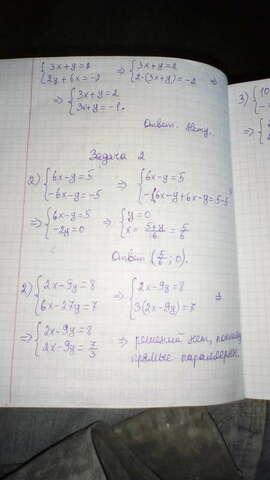 {3x+y=2 ⇒ {3x+y=2
{2y+6x=-2 {2·(3x+y)=-2 ⇒
⇒ {3x+y=2
{3x+y=-1.
Ответ. Нету.
Задача 2
2) {6x-y=5 ⇒ {6x-y=5
{-6x-y=-5 {-6x-y+6x-y=5-5
⇒ {6x-y=5 ⇒ {y=0
{-2y=0 {x= 5+y/6 = 5/6
Ответ (5/6; 0).
2) {2x-9y=8 {2x-9y=8
{6x-27y=7 ⇒ {3(2x-9y)=7 ⇒
⇒ {2x-9y=8
{2x-9y= 7/3 ⇒ решений нет,
прямые параллельн.
3) {10